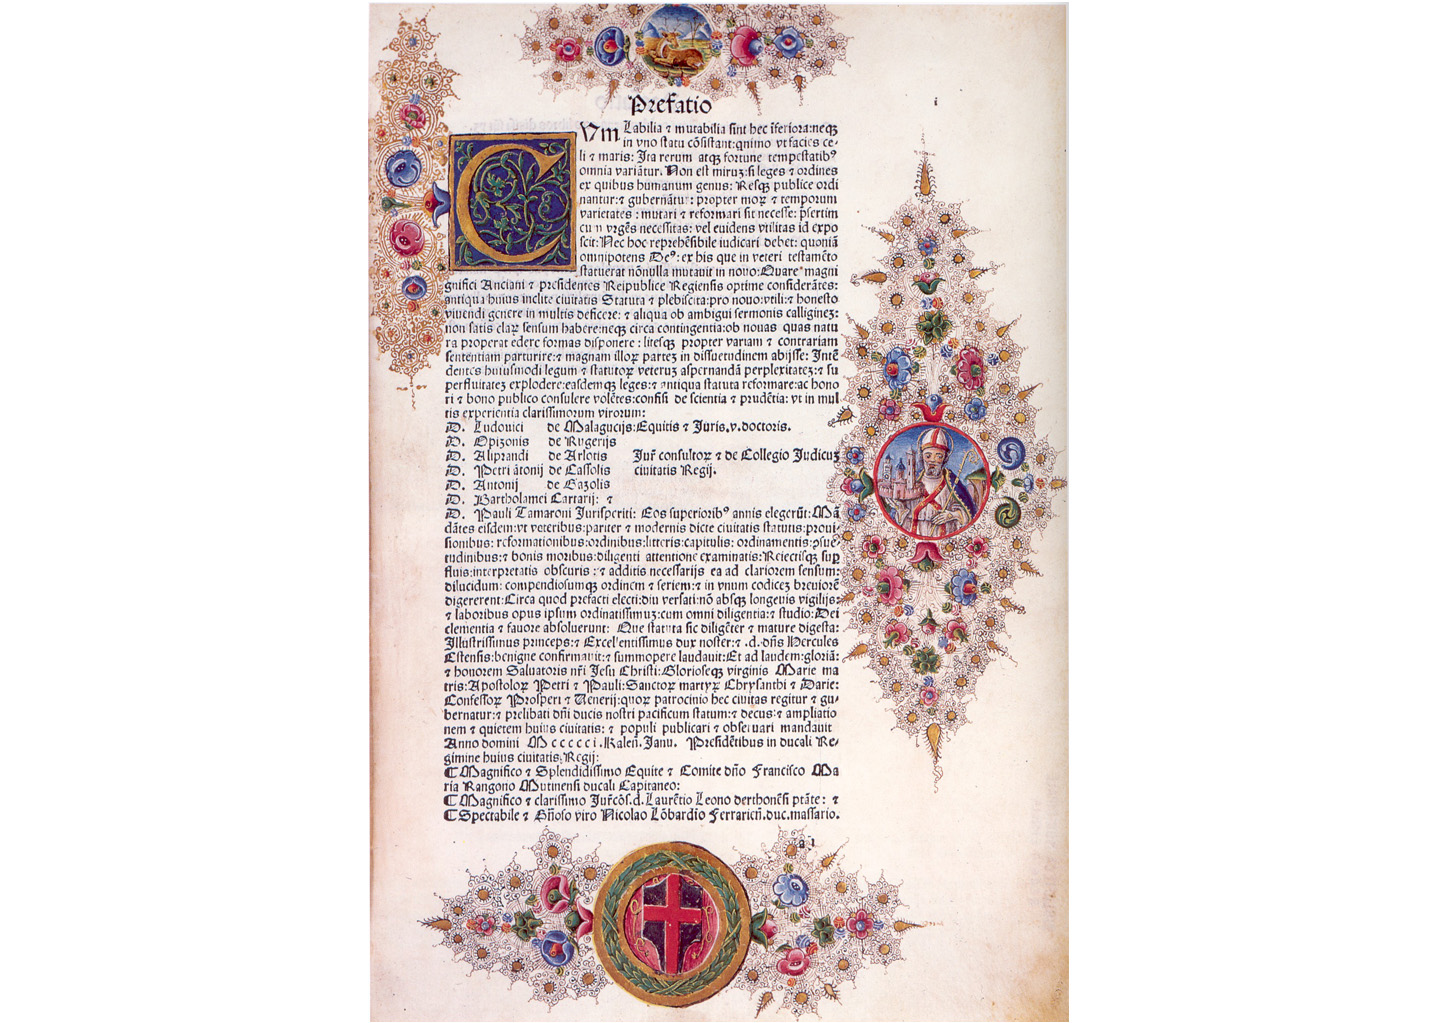 Prefatio
i
CVm Labilia ⁊ mutabilia sint hec īferiora:neqꝫ
in vno statu cōsistant:qnimo vt facies ce-
li ⁊ maris: Ita rerum atqꝫ fortune tempestatibꝰ
omnia variātur. Non est miruꝫ:si leges ⁊ ordines
ex quibus humanum genus: Resqꝫ publice ordi
nantur:⁊ gubernātur: propter moꝝ ⁊ temporum
varietates: mutari ⁊ reformari sit necesse: p̄sertim
cu vrgēs necessitas: vel euidens vtilitas id expo
scit: Nec hoc reprehēsibile iudicari debet: quoniā
omnipotens Deꝰ: ex his que in veteri testamēto
statuerat nōnulla mutauit in nouo: Quare magni
gnifici Anciani ⁊ presidentes Reipublice Regiensis optime considerātes:
antiqua huius inclite ciuitatis Statuta ⁊ plebiscita:pro nouo:vtili:⁊ honesto
viuendi genere in multis deficere: ⁊ aliqua ob ambigui sermonis calligineꝫ:
non satis claꝝ sensum habere:neqꝫ circa contingentia:ob nouas quas natu
ra properat edere formas disponere: litesqꝫ propter variam ⁊ contrariam
sententiam parturire:⁊ magnam illoꝝ parteꝫ in dissuetudinem abijsse: Intē
dentes huiusmodi legum ⁊ statutoꝝ veteruꝫ aspernandā perplexitateꝫ:⁊ su
perfluitateꝫ explodere:easdemqꝫ leges:⁊ antiqua statuta reformare:ac hono
ri ⁊ bono publico consulere volētes:confisi de scientia ⁊ prudētia: vt in mul
tis experientia clarissimorum virorum:
D. Ludouici de Malagucijs:Equitis ⁊ Juris.v.doctoris.
D. Opizonis de Rugerijs
D. Aliprandi de Arlotis Jur̄ consultoꝝ ⁊ de Collegio Judicuꝫ
D. Petri ātonij de Cassolis ciuitatis Regij.
D. Antonij de Gazolis
D. Bartholamei Cartarij: ⁊
D. Pauli Tamaroni Jurisperiti: Eos superioribꝰ annis elegerūt:Mā
dātes eisdem:vt veteribus:pariter ⁊ modernis dicte ciuitatis statutis:proui-
sionibus: reformationibus:ordinibus:litteris:capitulis: ordinamentis:ꝯsue
tudinibus:⁊ bonis moribus:diligenti attentione examinatis:Reiectisqꝫ suꝑ
fluis:interpretatis obscuris: ⁊ additis necessarijs ea ad clariorem sensum:
dilucidum: compendiosumqꝫ ordinem ⁊ seriem:⁊ in vnum codiceꝫ breuiorē
digererent:Circa quod prefacti electi:diu versati:nō absqꝫ longeuis vigilijs:
⁊ laboribus opus ipsum ordinatissimuꝫ:cum omni diligentia:⁊ studio:Dei
clementia ⁊ fauore absoluerunt: Que statuta sic diligēter ⁊ mature digesta:
Illustrissimus princeps:⁊ Excellentissimus dux noster:⁊ .d.dn̄s Hercules
Estensis:benigne confirmauit:⁊ summopere laudauit:Et ad laudem:gloriā:
⁊ honorem Saluatoris nr̄i Jesu Christi:Glorioseqꝫ virginis Marie ma
tris:Apostoloꝝ Petri ⁊ Pauli:Sanctoꝝ martyꝝ Chrysanthi ⁊ Darie:
Confessoꝝ Prosperi ⁊ Venerij:quoꝝ patrocinio hec ciuitas regitur ⁊ gu-
bernatur:⁊ prelibati dn̄i ducis nostri pacificum statum:⁊ decus:⁊ ampliatio
nem ⁊ quietem huius ciuitatis: ⁊ populi publicari ⁊ obseruari mandauit
Anno domini Mccccci.Kalen̄.Janu. Presidētibus in ducali Re-
gimine huius ciuitatis Regij:
¶ Magnifico ⁊ Splendidissimo Equite ⁊ Comite dn̄o Francisco Ma
ria Rangono Mutinensi ducali Capitaneo:
¶ Magnifico ⁊ clarissimo Jur̄cōs.d.Laurētio Leono derthonēsi ptāte: ⁊
¶ Spectabile ⁊ Gn̄oso viro Nicolao Lōbardīo Ferrarien̄.duc.massario.